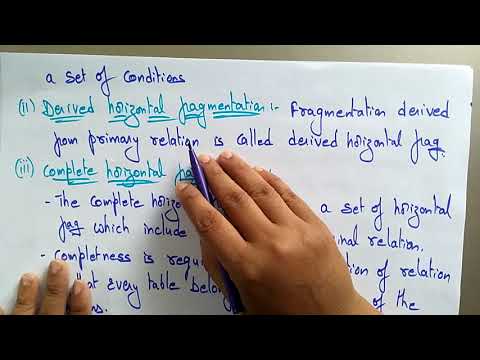 a set of conditions
(ii) Derived horizontal fragmentation :- Fragmentation derived
from primary relation is called derived horizontal frag.
(iii) Complete horizontal
- The complete a set of horizontal
frag which include relation.
- Completness is of relation
that every table of the